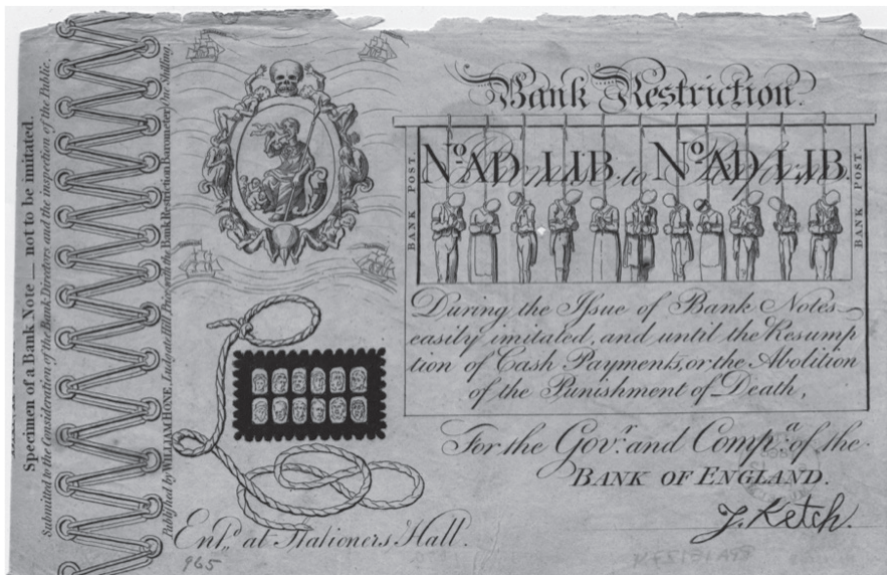 Specimen of a Bank Note — not to be imitated.
Submitted to the Consideration of the Bank Directors and the inspection of the Public.
Published by WILLIAM HONE, Ludgate Hill. Price with the Bank Restriction Barometer, One Shilling.
Bank Restriction.
BANK POST.
Nº. AD. LIB. to Nº. AD. LIB.
BANK POST.
During the Iſsue of Bank Notes
easily imitated, and until the Resump
tion of Cash Payments, or the Abolition
of the Punishment of Death,
For the Govr. and Compa. of the
BANK OF ENGLAND.
J. Ketch.
Entd. at Stationers Hall.
965